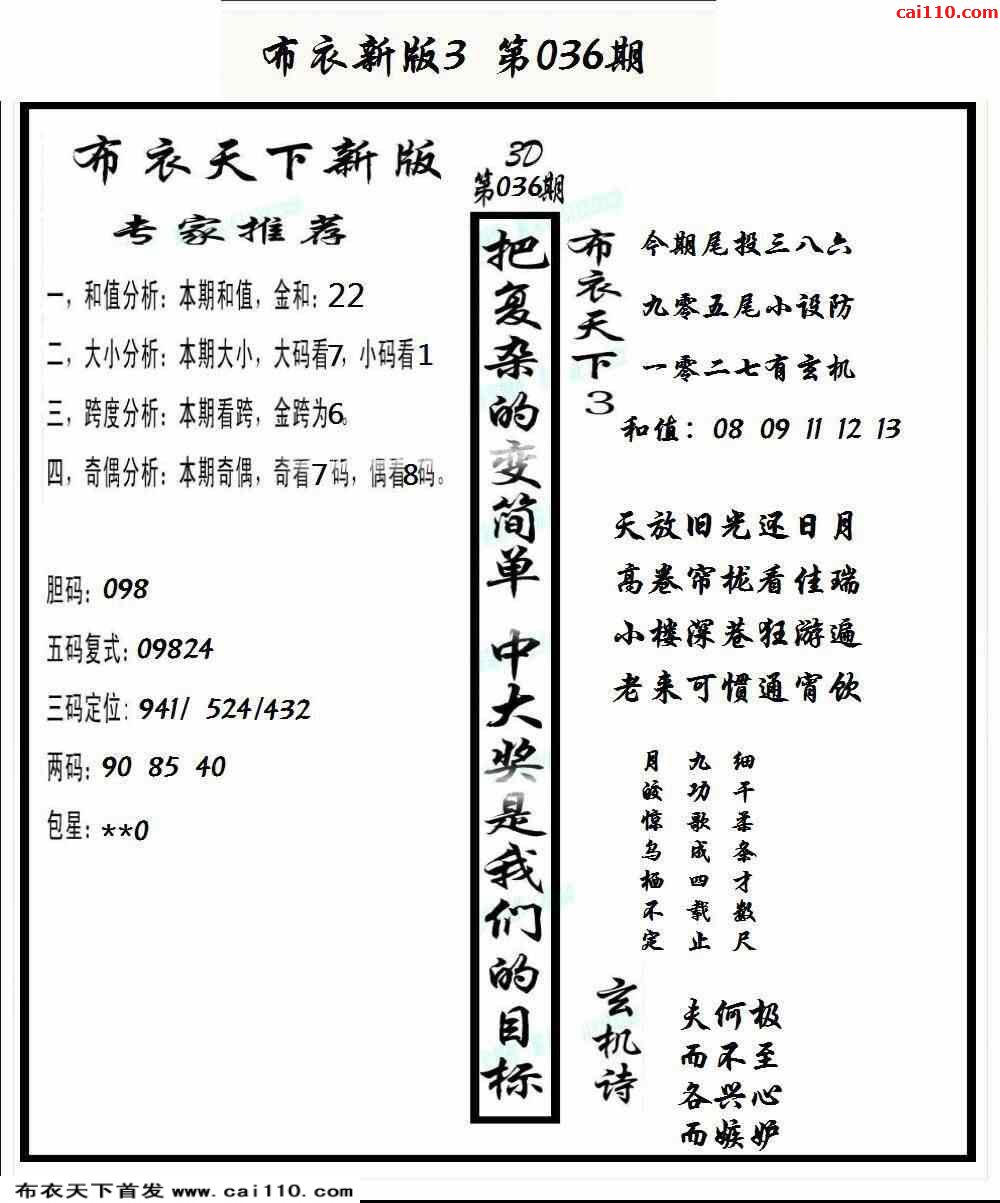 cai110.com
布衣新版3 第036期
布衣天下新版
专家推荐
一，和值分析：本期和值，金和：22
二，大小分析：本期大小，大码看7，小码看1
三，跨度分析：本期看跨，金跨为6。
四，奇偶分析：本期奇偶，奇看7码，偶看8码。
胆码：098
五码复式：09824
三码定位：941/ 524/432
两码：90 85 40
包星：**0
3D
第036期
把复杂的变简单 中大奖是我们的目标
布衣天下3
今期尾投三八六
九零五尾小设防
一零二七有玄机
和值：08 09 11 12 13
天放旧光还日月
高卷帘栊看佳瑞
小楼深巷狂游遍
老来可惯通宵饮
细干柔条才数尺
九功歌成四载止
月皎惊乌栖不定
玄机诗
夫何极
而不至
各兴心
而嫉妒
布衣天下首发 www.cai110.com